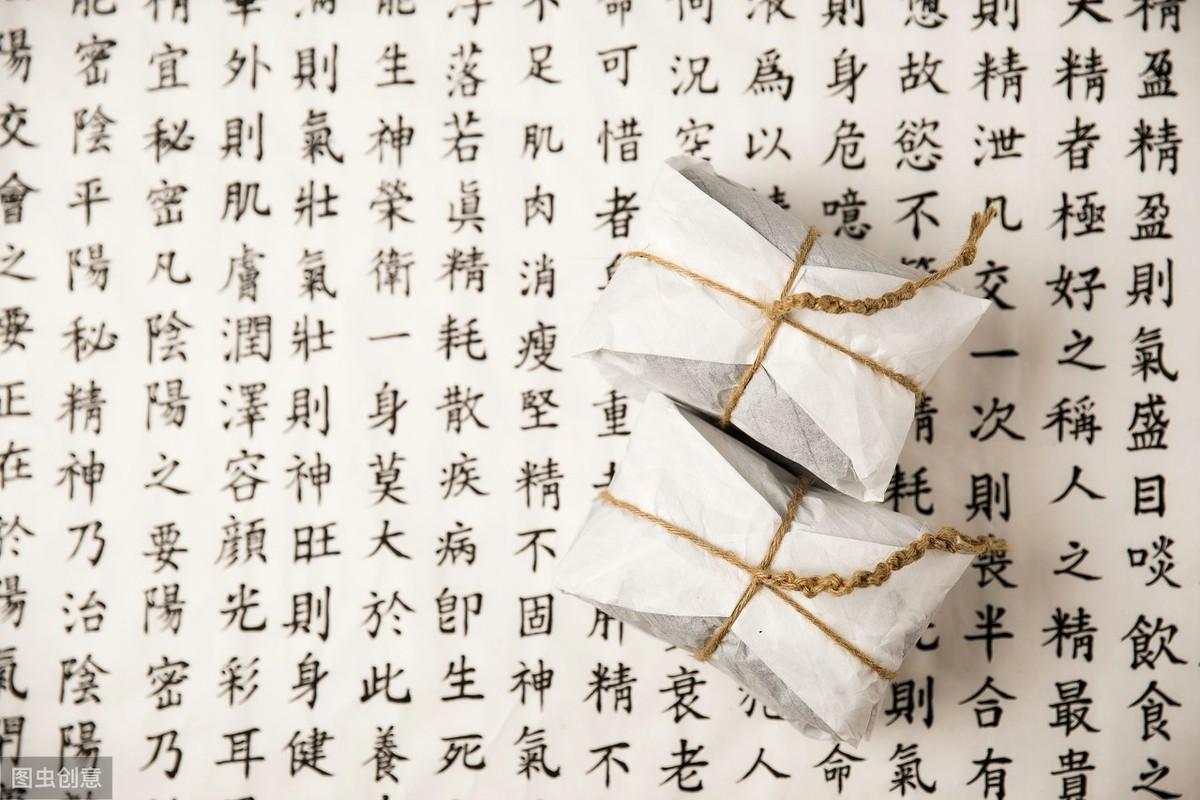 精盈精盈則氣盛目啖飲食之
精者極好之稱人之精最貴
則精泄凡交一次則喪半合有
應故慾不精耗則氣
則身危噫命
液爲以人
何況衰老
命可惜者重肝精不
不足肌肉消瘦堅精不固神氣
浮落若眞精耗散疾病卽生死
能生神榮衛一身莫大於此養
滿則氣壯氣壯則神旺則身健
外則肌膚潤澤容顏光彩耳
精宜秘密凡陰陽之要陽密乃
能密陰平陽秘精神乃治陰陽
陽交會之要正在於陽氣閉
图虫创意